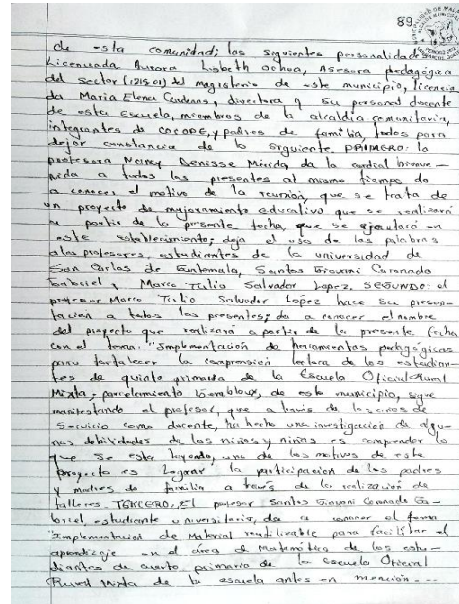 89
de esta comunidad; los siguientes personalidades
Licenciada Aurora Lisbeth Ochoa, Asesora pedagógica
del sector (1215.01) del magisterio de este municipio, licencia
da Maria Elena, directora y su personal docente
de esta Escuela, miembros de la alcaldía comunitaria,
integrantes de COCODE, y padres de familia, todos para
dejor constancia de lo siguiente PRIMERO: la
profesora Denisse Mérida da la cordial bienve-
nida a todos los presentes al mismo tiempo da
a conocer el motivo de la reunión, que se trata de
un proyecto de mejoramiento educativo que se realizará
a partir de la presente fecha, que se ejecutará en
este establecimiento; deja el uso de las palabras
a los profesores, estudiantes de la universidad de
San Carlos de Guatemala, Santos Giovani Coronado
Gabriel y Marco Tulio Salvador Lopez. SEGUNDO: el
profesor Marco Tulio Salvador Lopez hace su presen-
tación a todos los presentes; da a conocer el nombre
del proyecto que realizará a partir de la presente fecha
con el tema: "Implementación de herramientas pedagógicas
para fortalecer la comprensión lectora de los estudian-
tes de quinto primaria de la Escuela Oficial Rural
Mixta, parcelamiento, de este municipio, sigue
manifestando el profesor, que a través de los años de
Servicio como docente, ha hecho una investigación de algu-
nas debilidades de los niños y niñas es comprender lo
que se esta leyendo, uno de los motivos de este
proyecto es Lograr la participación de los padres
y madres de familia a través de la realización de
talleres. TERCERO: El profesor Santos Giovani Coronado Ga-
briel, estudiante universitario, da a conocer el tema
Implementación de Material reutilizable para facilitar el
aprendizaje en el área de Matemática de los estu-
diantes de cuarto primaria de la Escuela Oficial
Rural Mixta de la escuela antes en mención ---